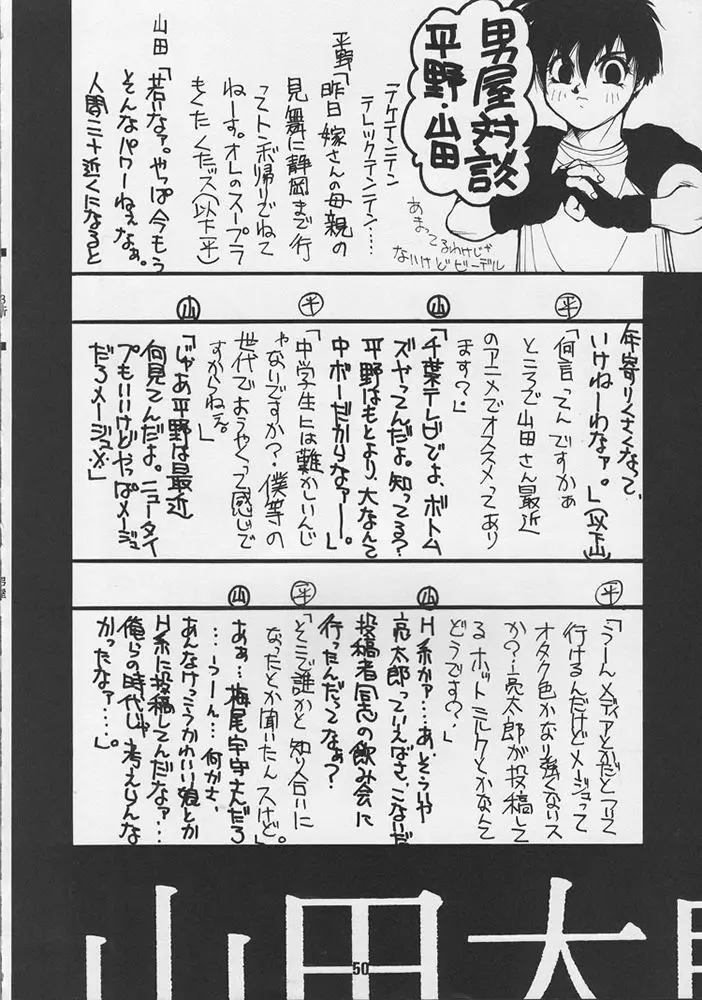 男屋対談
平野・山田
あまってるわけじゃ
ないけどビーデル
テケテンテテン
テレックテンテン…
平野「昨日嫁さんの母親の
見舞に静岡まで行
ってトンボ帰りでねて
ねーす。オレのスープラ
もくたくたッス(以下平)
山田「若いなァ。やっぱ今もう
そんなパワーねぇなぁ。
人間三十近くになると
年寄りくさくなって、
いけねーわなァ。」(以下山)
平「何言ってんですかぁ
ところで山田さん最近
のアニメでオススメってあり
ます?」
山「千葉テレビでよ、ボトム
ズやってんだよ。知ってる?
平野はもとより、大なんて
中ボーだかりなァー。」
平「中学生には難かしいんじ
ゃないですか?僕等の
世代でようやくって感じで
すからねえ。」
山「じゃあ平野は最近
何見てんだよ。ニュータイ
プもいいけどやっぱメージュ
だろメージュ。」
平「うーんメディアとかだとついて
行けるんだけどメージュって
オタク色かなり強くないス
か?…亮太郎が投稿して
るホットミルクとかなんて
どうです?」
山「H系かァ…あ、そういや
亮太郎っていえばさ、こないだ
投稿者同志の飲み会に
行ったんだってなぁ?
平「そこで誰かと知り合いに
なったとか聞いたんスけど。」
山「あぁ…梅尾宇守さんだろ
…うーん…何かさ、
あんなけっこうかわいい娘とか
H系に投稿してんだなァ…
俺らの時代じゃ考えりんな
かったなァ…。」
50
山田太